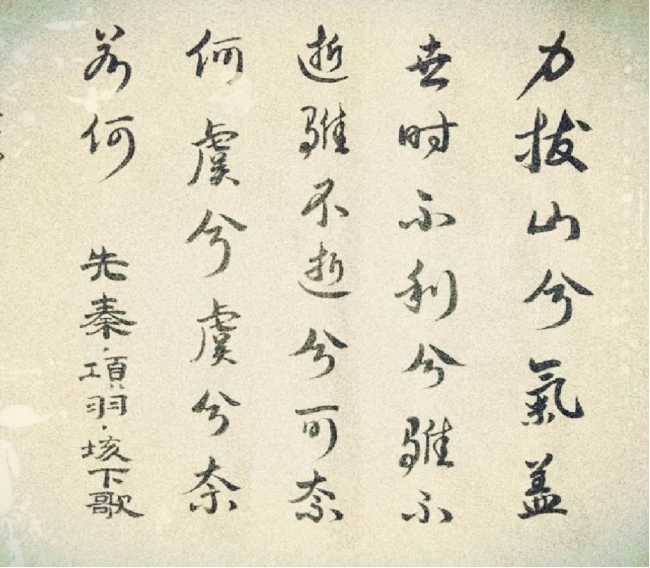 力拔山兮氣蓋
世時不利兮騅不
逝騅不逝兮可奈
何虞兮虞兮奈
若何
先秦·項羽·垓下歌